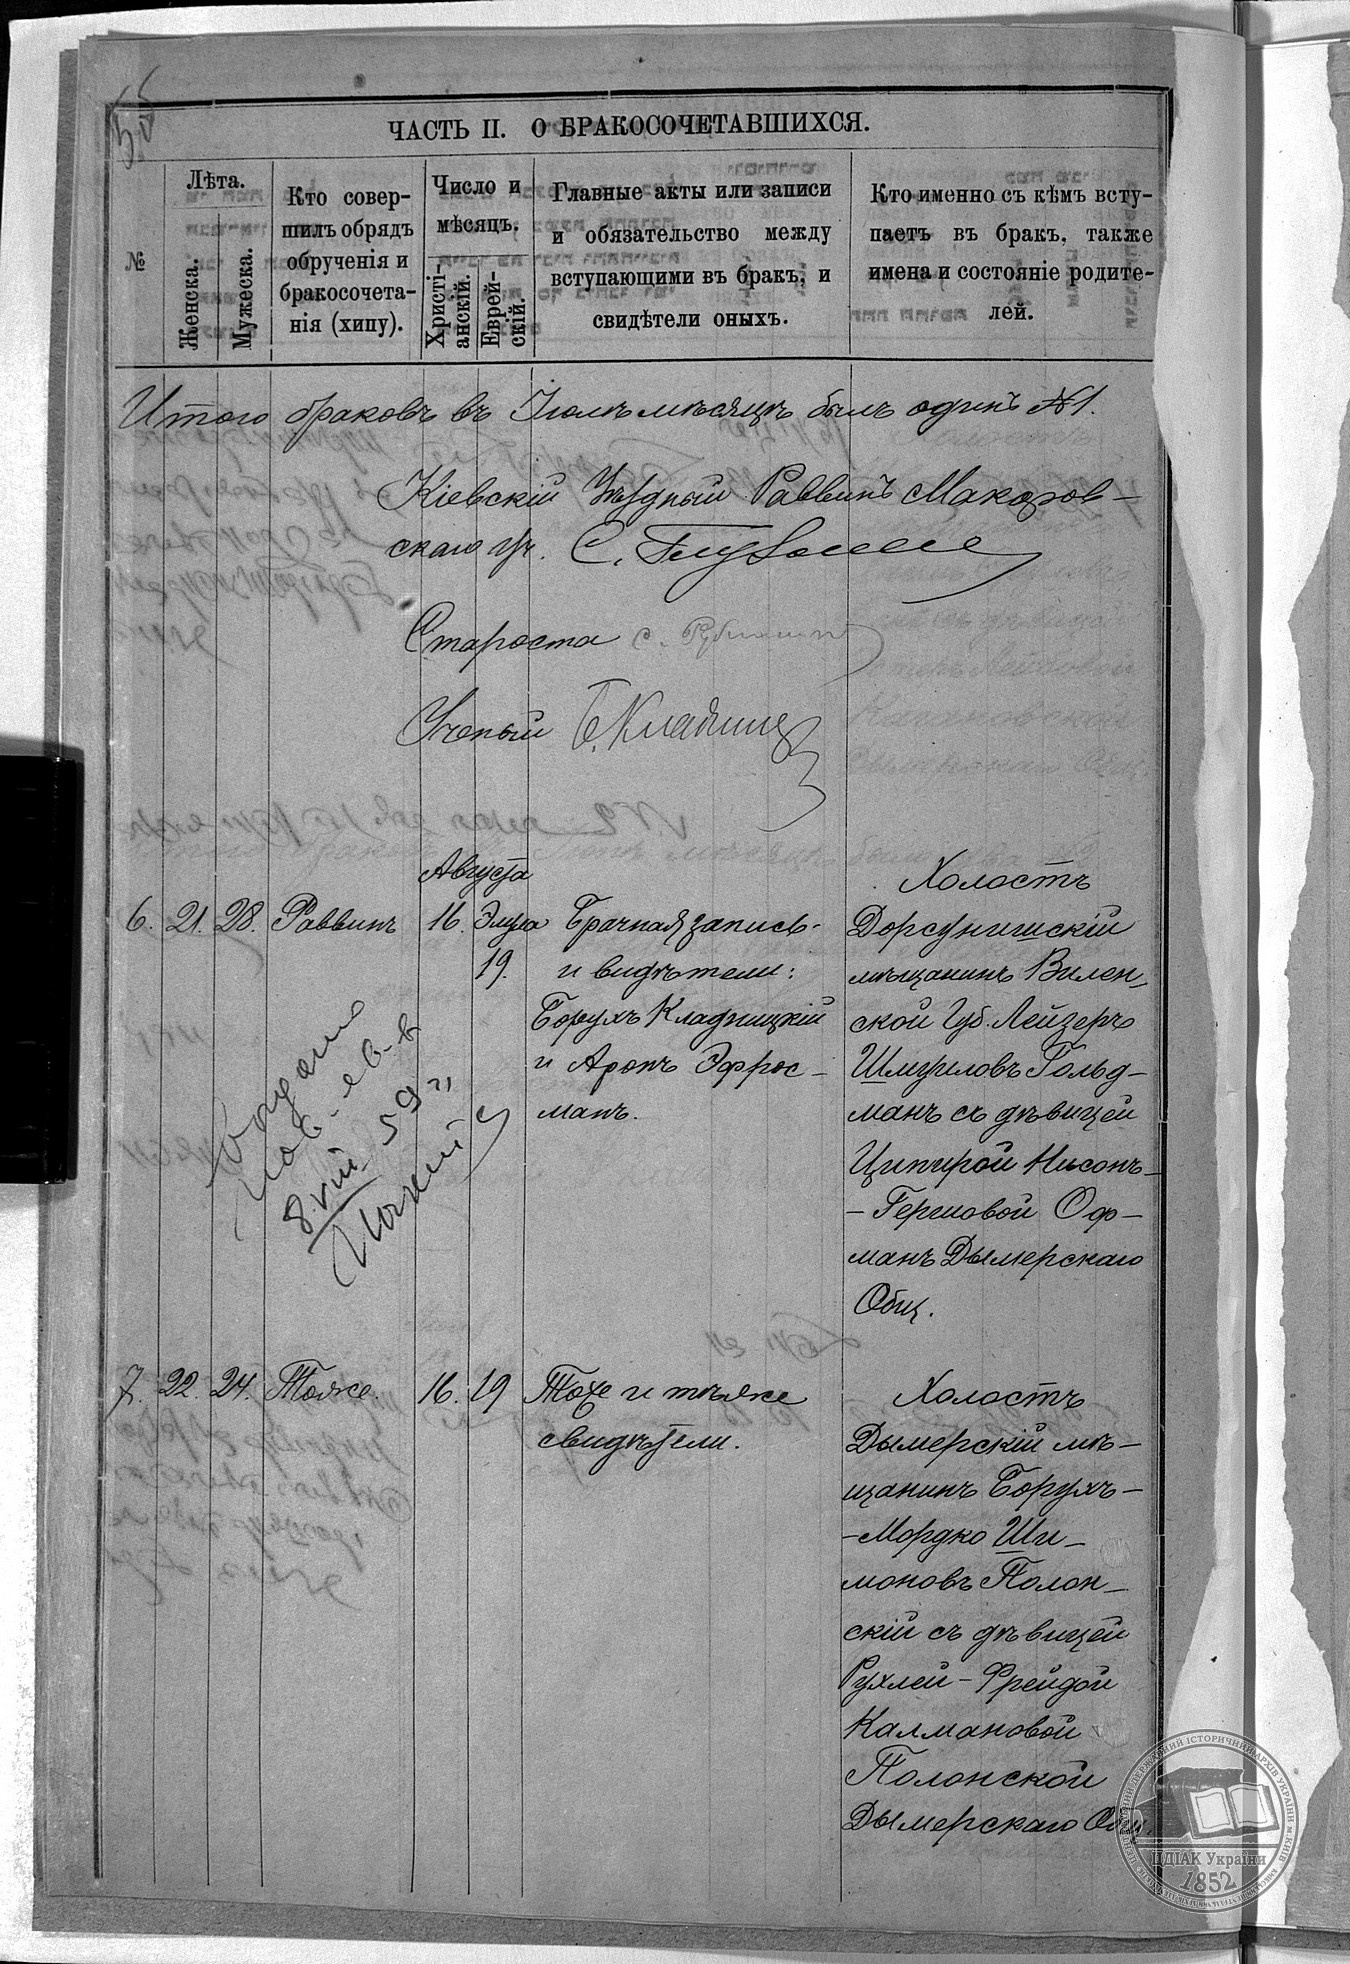 ЧАСТЬ II. О БРАКОСОЧЕТАВШИХСЯ.
№
Лѣта.
Женска.
Мужеска.
Кто совер-
шилъ обрядъ
обрученія и
бракосочета-
нія (хипу).
Число и
мѣсяцъ.
Христі-
анскій.
Еврей-
скій.
Главные акты или записи
и обязательство между
вступающими въ бракъ, и
свидѣтели оныхъ.
Кто именно съ кѣмъ всту-
паетъ въ бракъ, также
имена и состояніе родите-
лей.
Итого браковъ въ Іюлѣ мѣсяцѣ былъ одинъ №1.
Кіевскій Уѣздный Раввинъ Макаров-
скаго уч. С.
Староста С.
Ученый Б.
Августа
6. 21. 28. Раввинъ 16. Элула
19.
Брачная запись
и видѣтели:
Борухъ Кладницкій
и Аронъ Эфрос-
манъ.
Холостъ
Дорсунишскій
мѣщанинъ Вилен-
ской Губ. Лейзеръ
Шмуиловъ Гольд-
манъ съ дѣвицей
Ципирой Нисонъ-
-Гершовой Оф-
манъ Дымерскаго
Общ.
8.VIII 59
7. 22. 24. Тоже. 16. 19 Тоже и тѣже
свидѣтели.
Холостъ
Дымерскій мѣ-
щанинъ Борухъ-
-Мордко Ши-
моновъ Полон-
скій съ дѣвицей
Рухлей-Фрейдой
Калмановой
Полонской
Дымерскаго Общ.
ЦДІАК України
1852